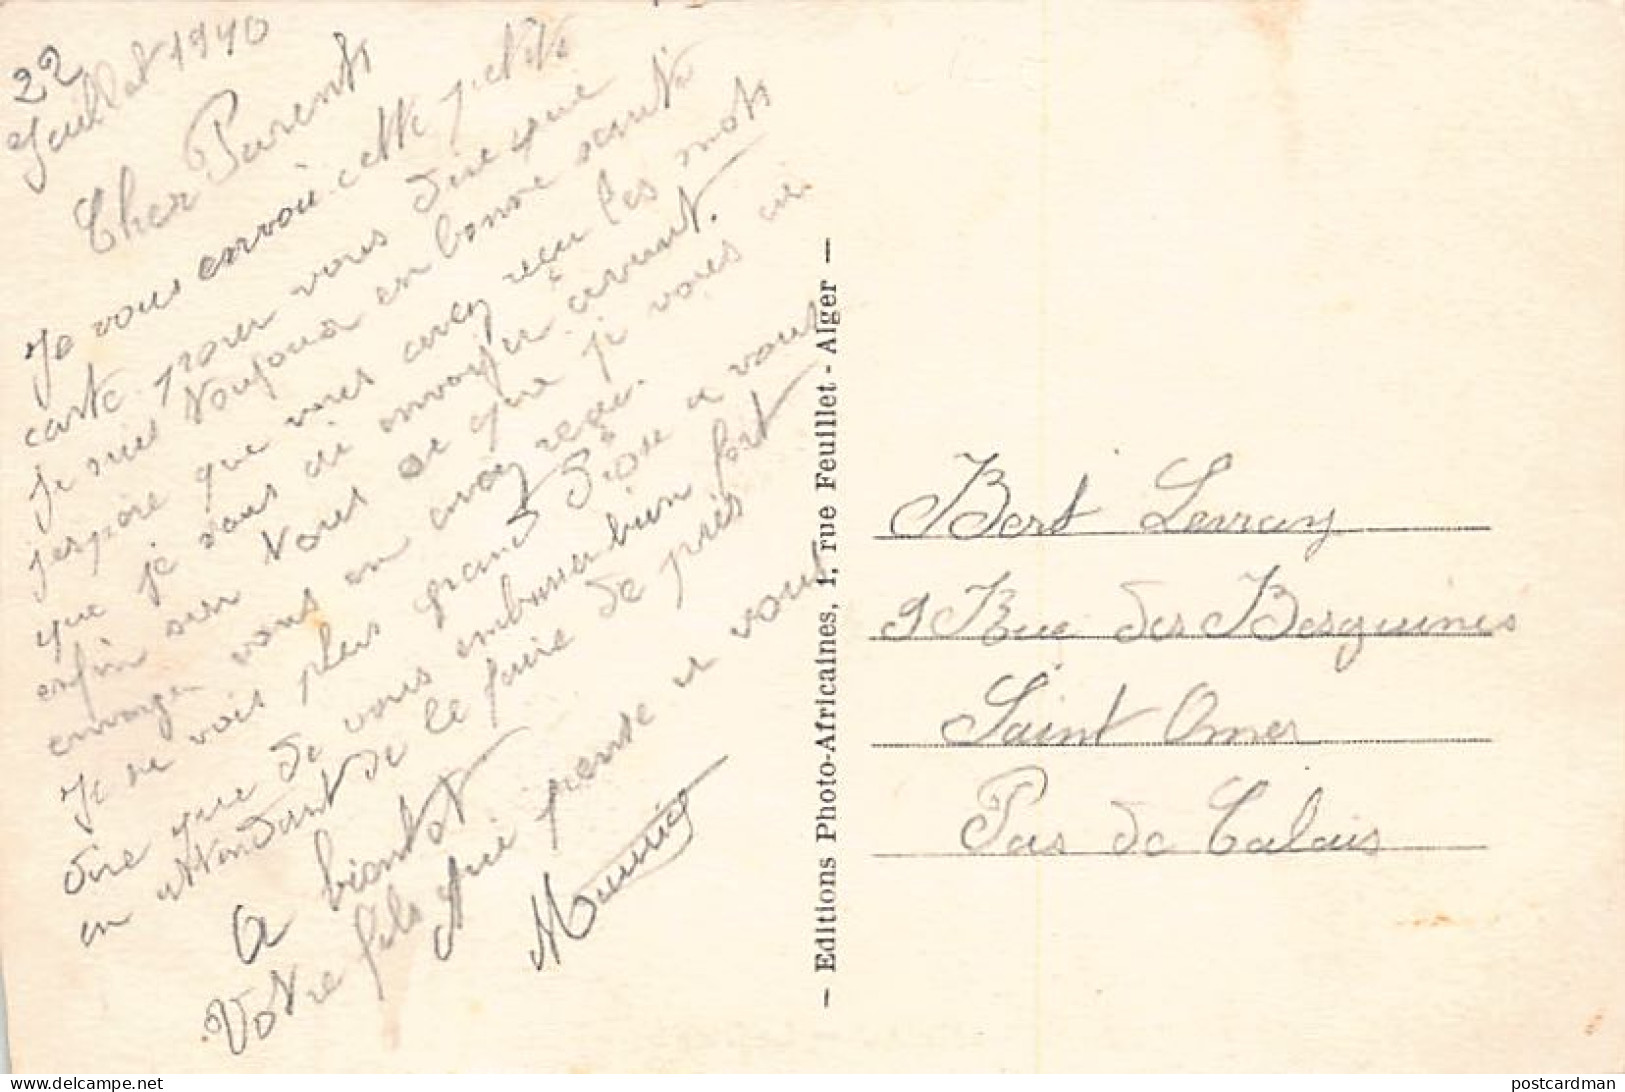 22
Juillet 1940
Cher Parents
Je vous envoie cette petite
carte pour vous dire que
je suis toujour en bonne santé
j'espère que vous avez reçu les mots
que je vous ai envoyer avant.
enfin sur tous ce que je vous ai
envoyer vous en avez reçu.
Je ne vois plus grand chose a vous
dire que de vous embrasser bien fort
en attendant de le faire de près
A biantot
Votre fils qui pense a vous
Bert Levray
9 Rue des Berguines
Saint Omer
Pas de Calais
— Editions Photo-Africaines, 1, rue Feuillet - Alger —
delcampe.net
postcardman